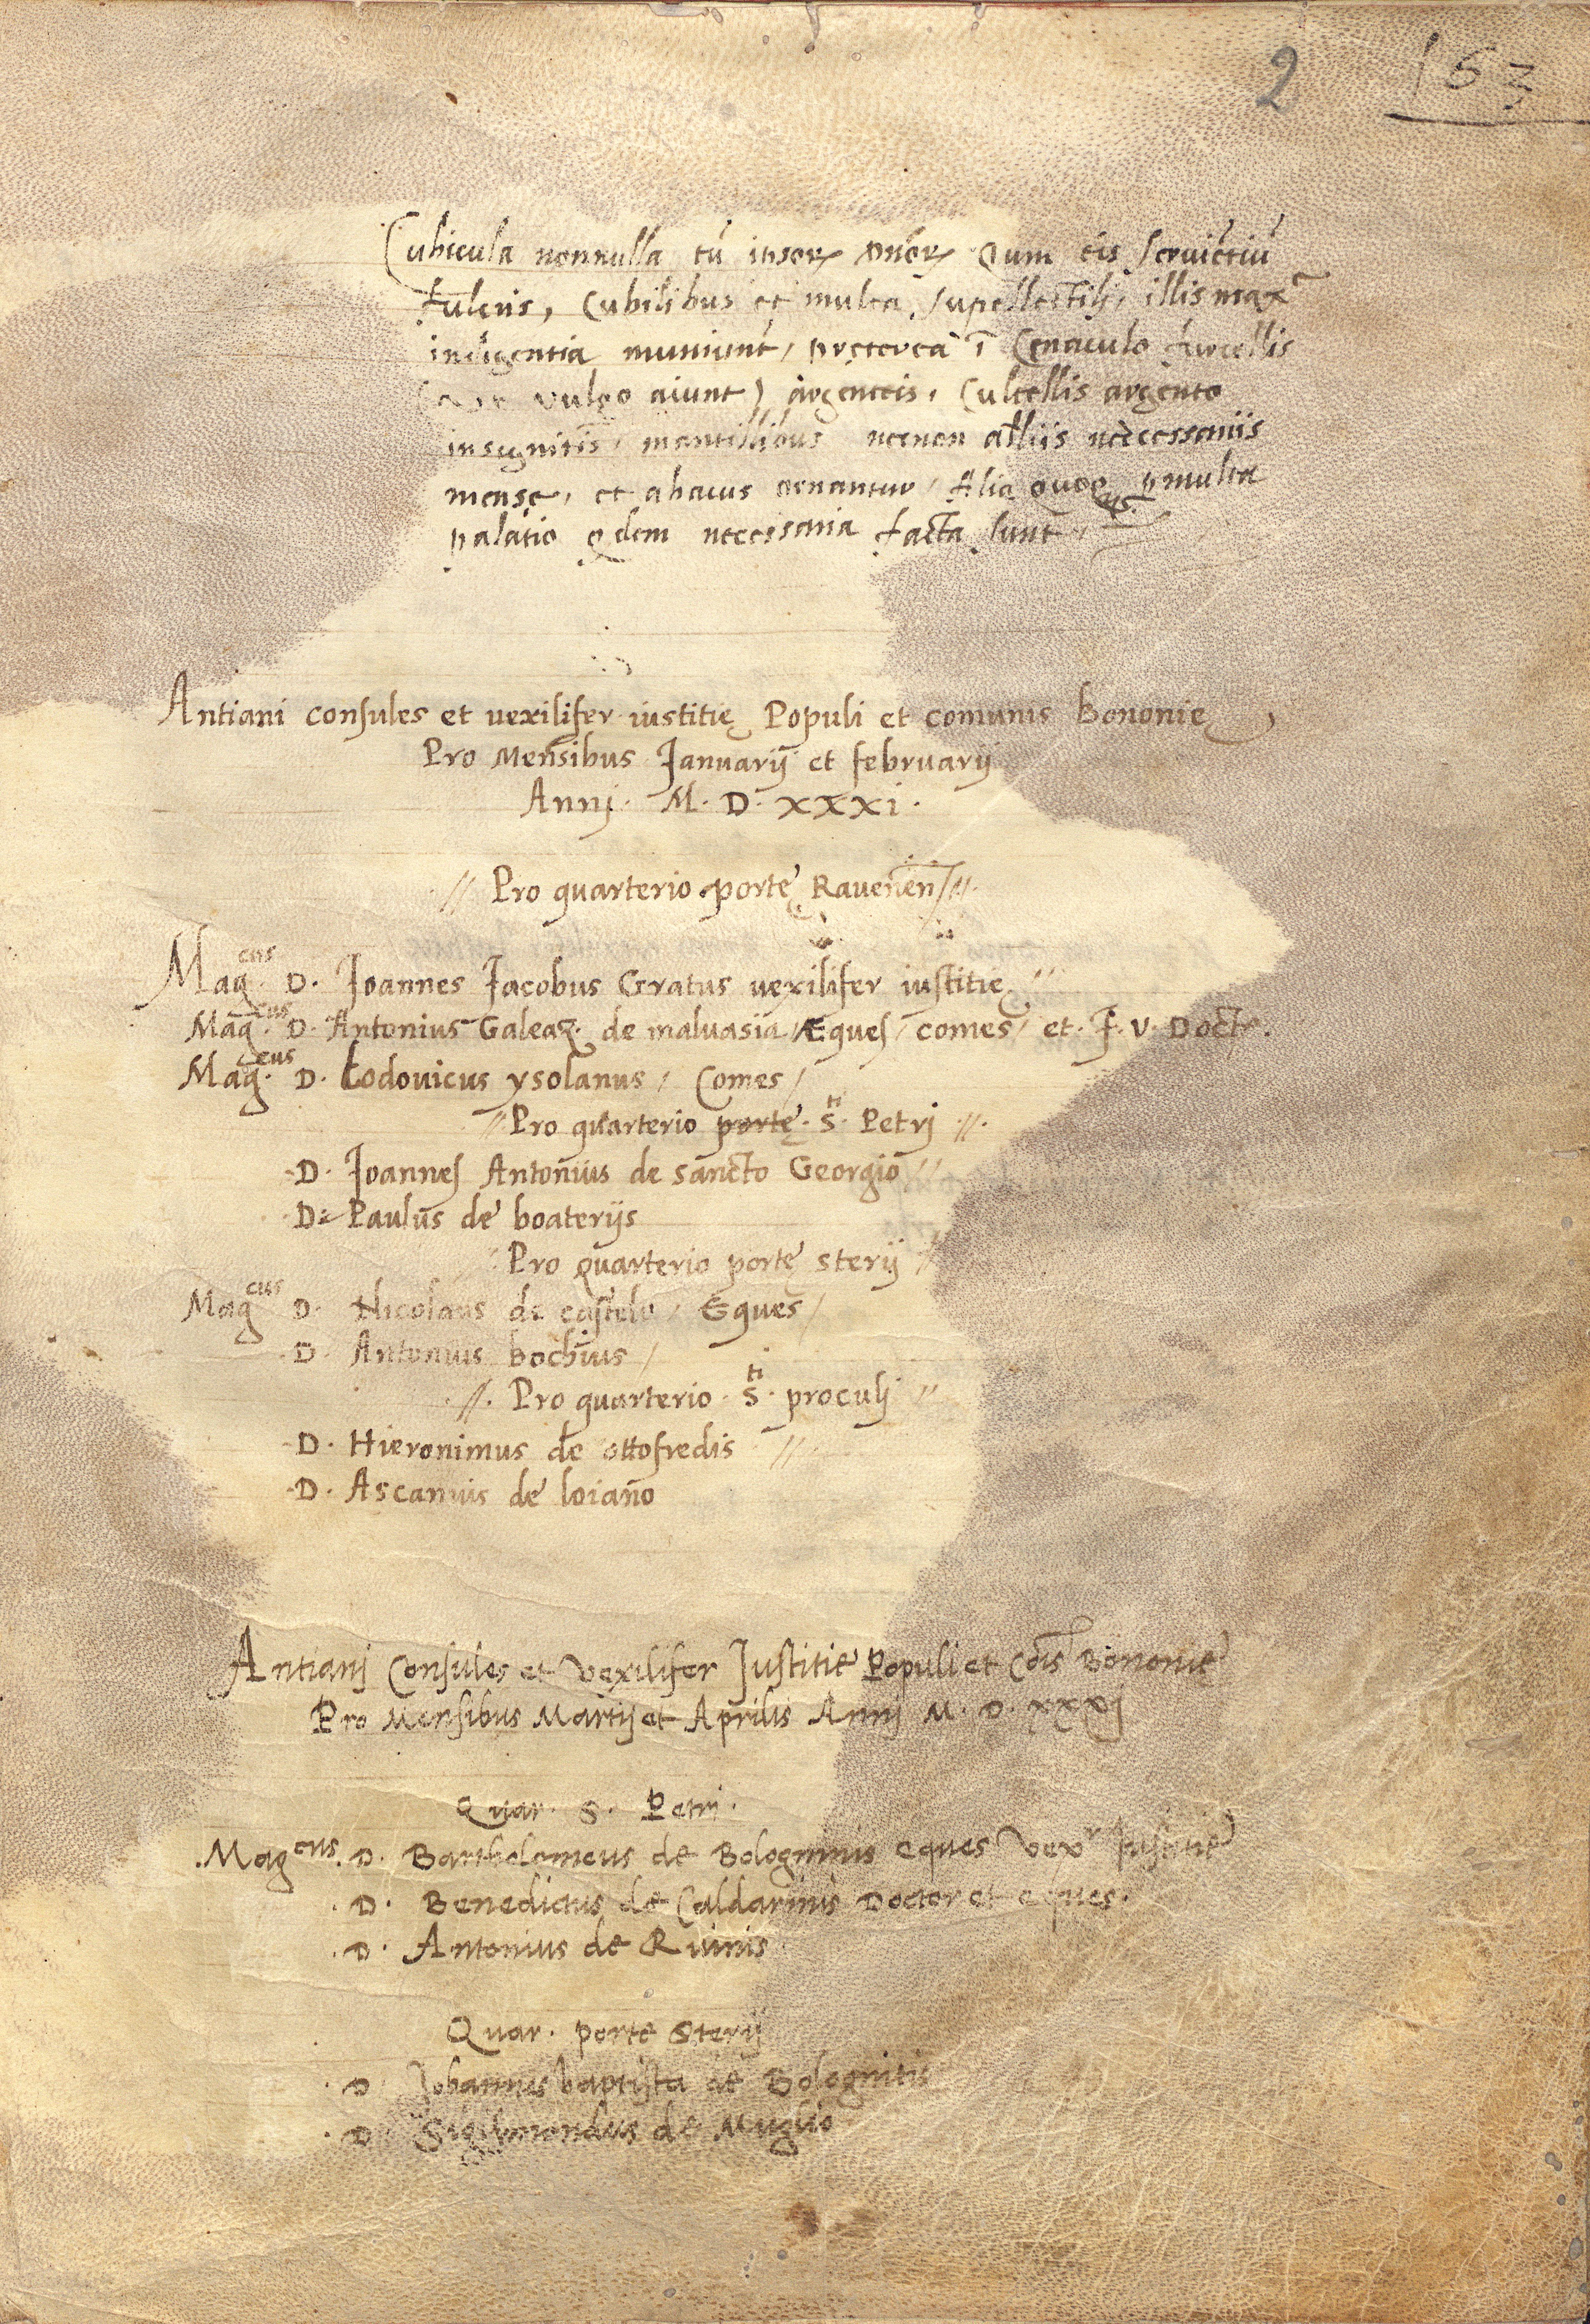 2 153
Cubicula nonnulla tū ipsorꝝ onōrꝝ Qum eis seruiētiū
fulcris, Cubilibus et multa supellectili, illis maxᵃ
indigentia muniunt, pręterea ī Cęnaculo furcellis
vulgo aiunt) argenteis, Cultellis argento
insignitis, mantillibus necnon alliis necessariis
mense, et abacus ornantur, Alia quoqꝫ ꝑmulta
palatio ꝗdem necessaria facta sunt,
Antiani consules et uexilifer iustitię Populi et comunis bononię,
Pro Mensibus Januarij et februarij
Annj. M. D. xxxi.
// Pro quarterio portę Rauenēn //.
Magᶜᵘˢ. D. Joannes Jacobus Gratus uexilifer iustitię //
Magᶜᵘˢ. D. Antonius Galeaz. de maluasia / Eques / comes / et. J. V. Doctʳ.
Magᶜᵘˢ. D. Lodouicus ysolanus / Comes /
// Pro quarterio porte. Sᵗⁱ. Petrj //.
D. Joannes Antonius de sancto Georgio //
D. Paulus de boaterijs
// Pro Quarterio portę sterij //
Magᶜᵘˢ D. Nicolaus de castelo / Eques /
D. Antonius bochius /
//. Pro quarterio. Sᵗⁱ. proculj //
D. Hieronimus de ottofredis //
D. Ascanius de loiano
Antianj Consules et Vexilifer Justitie Populi et Cōis Bononie
Pro Mensibus Martij et Aprilis Annj M. D. xxxj
Quar. S. Petri.
.Magᶜᵘˢ. D. Bartholomeus de Bologninis eques Vexʳ Justitie
. D. Benedictus de Caldarinis Doctor et eques.
. D. Antonius de Ruinis
Quar. porte Sterij
. D. Johannes baptista de Bolognitis
. D. Sigismondus de Muglio